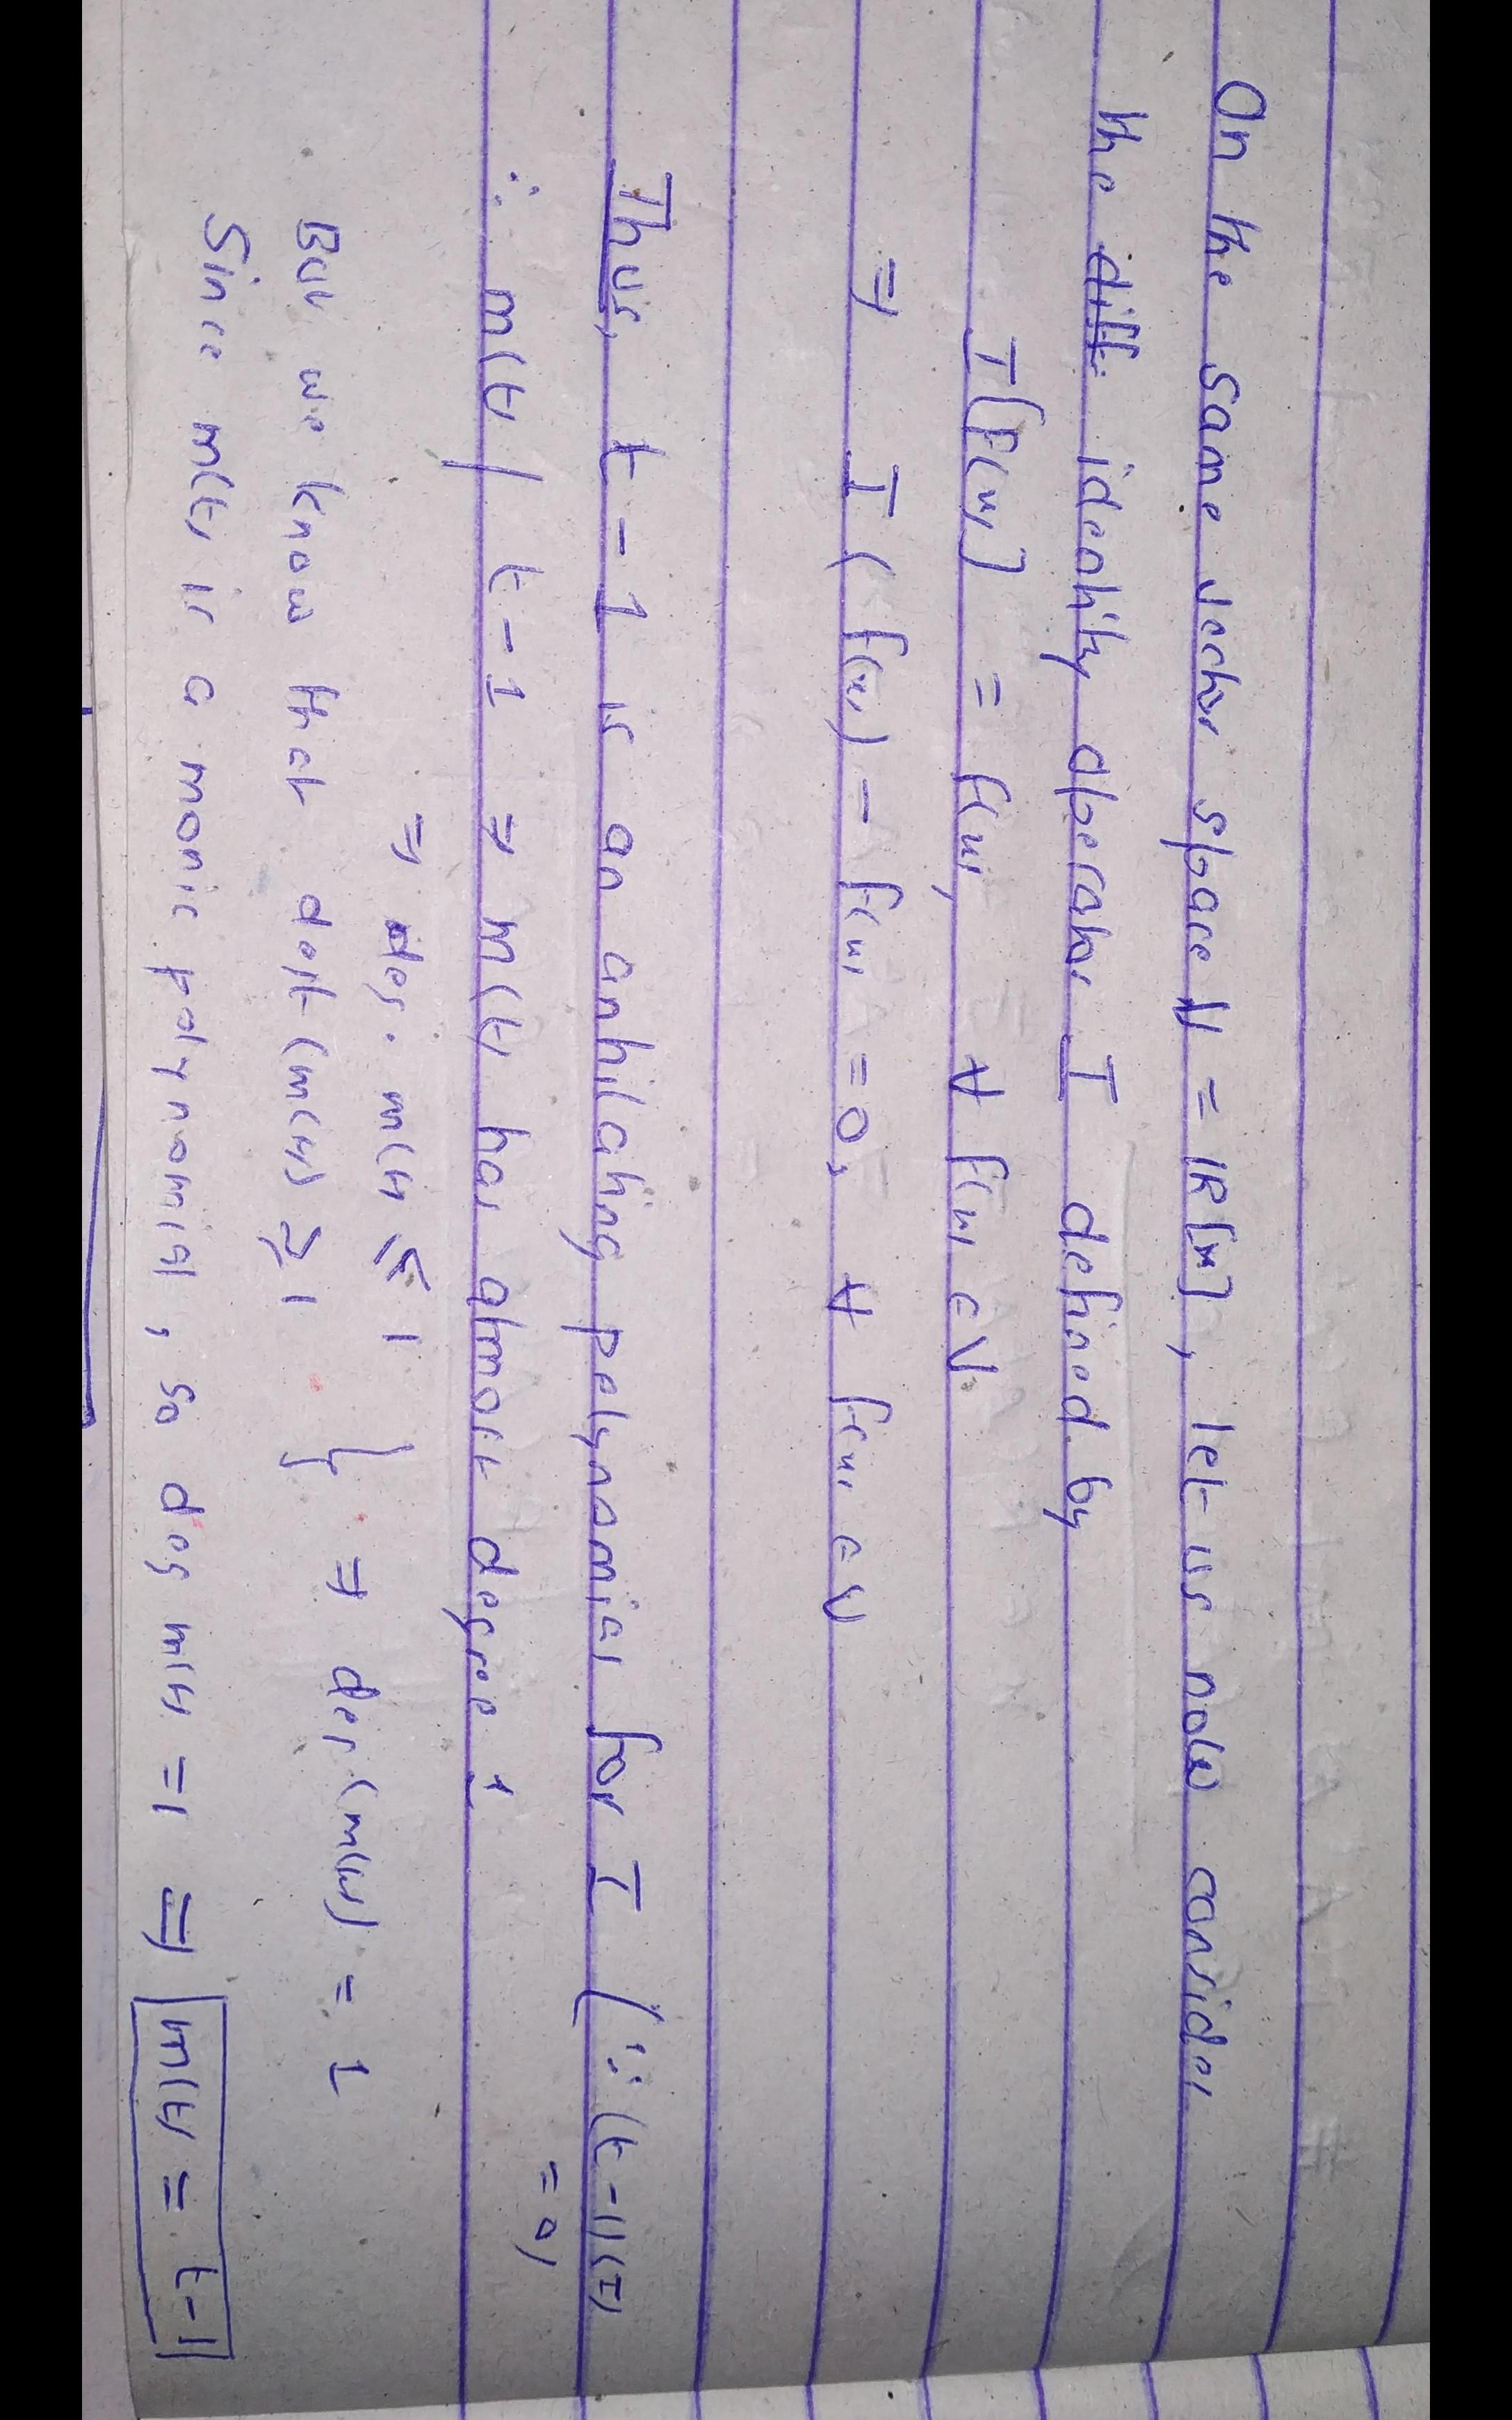 On the same vector space V = IR[x], let us now consider
the diff. identity operator I defined by
I[f(x)] = f(x), ∀ f(x) ∈ V
⇒ I(f(x)) - f(x) = 0, ∀ f(x) ∈ V
Thus, t - 1 is an anhilating polynomial for I (∵ (t-1)(I)
= 0)
∴ m(t) | t-1 ⇒ m(t) has atmost degree 1
⇒ deg. m(t) ≤ 1
But we know that deg (m(t)) ≥ 1 } ⇒ deg (m(t)) = 1
Since m(t) is a monic polynomial, so deg m(t) = 1 ⇒ m(t) = t-1